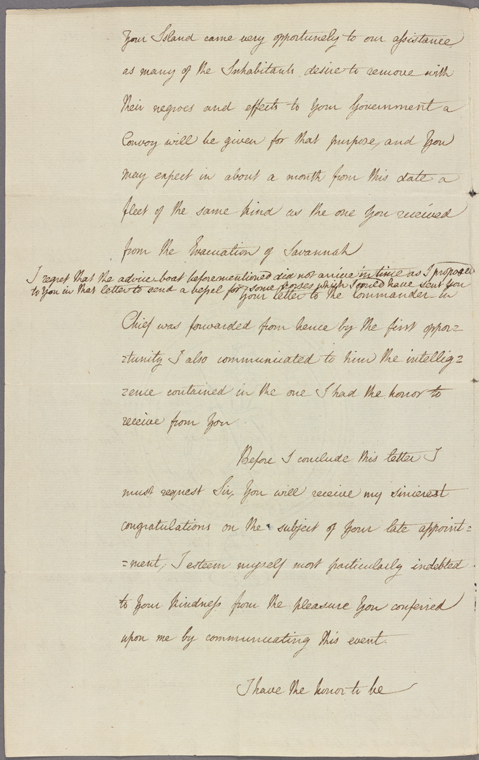 Your Island came very opportunely to our assistance
as many of the Inhabitants desire to remove with
their negroes and effects to Your Government a
Convoy will be given for that purpose, and You
may expect in about a month from this date a
fleet of the same kind as the one You received
from the Evacuation of Savannah
I regret that the advice boat beforementioned did not arrive in time as I proposed
to You in that letter to send a vessel for some Horses which I could have sent You
Your letter to the Commander in
Chief was forwarded from hence by the first oppor=
=tunity I also communicated to him the intellig=
=ence contained in the one I had the honor to
receive from You
Before I conclude this letter I
must request Sir, You will receive my sincerest
congratulations on the subject of Your late appoint=
=ment, I esteem myself most particularly indebted
to Your kindness from the pleasure You conferred
upon me by communicating this event.
I have the honor to be